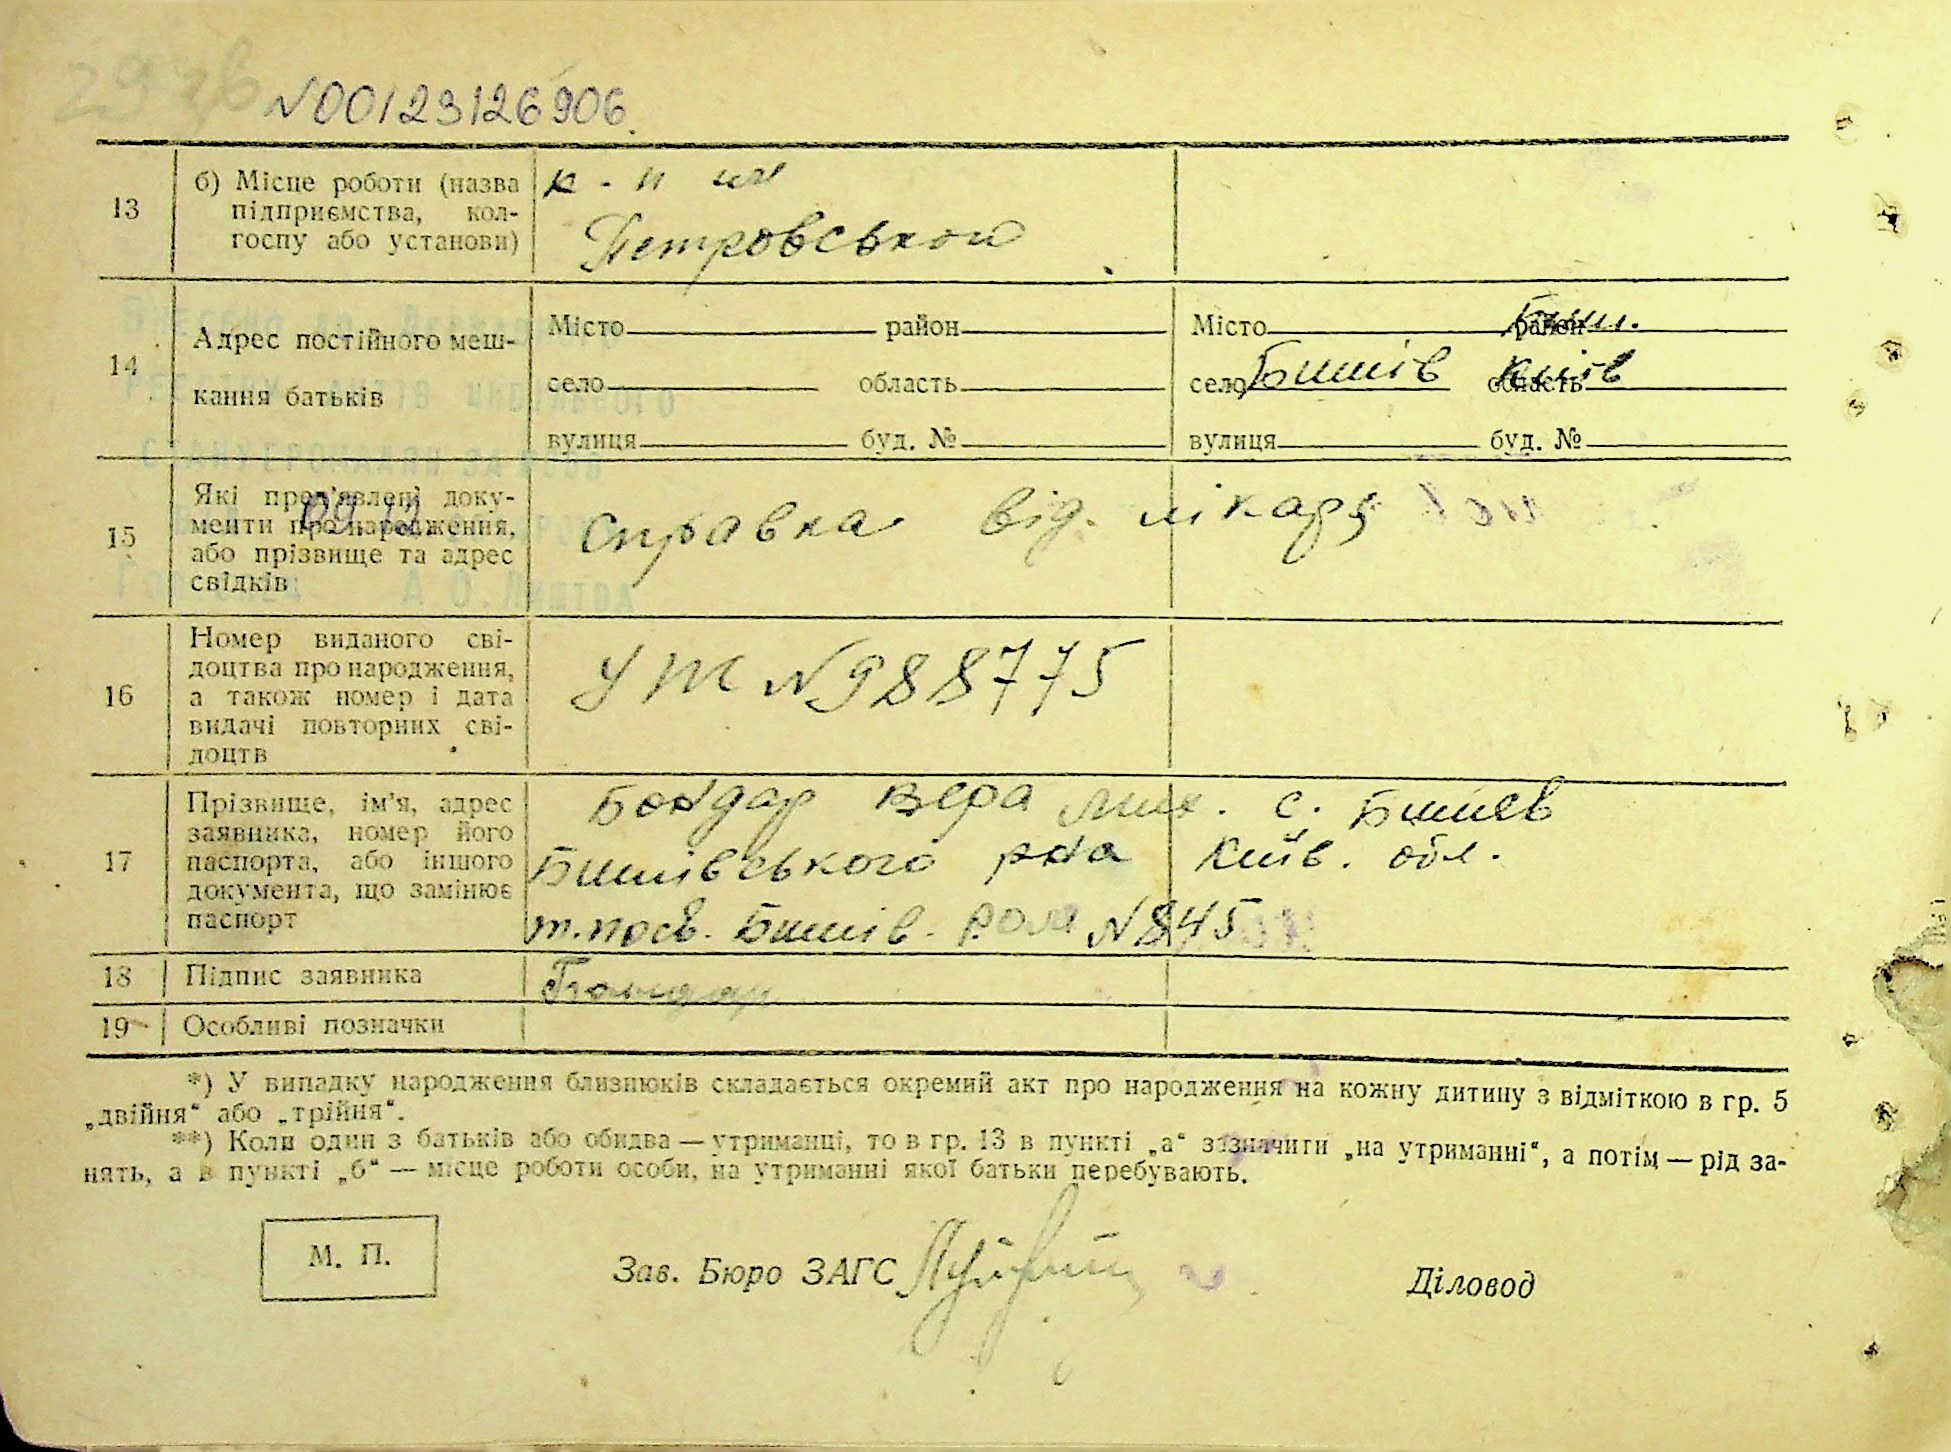 N00123126906
13
б) Місце роботи (назва
підприємства, кол-
госпу або установи)
к - п ім
Петровської
14
Адрес постійного меш-
кання батьків
Місто район
село область
вулиця буд. №
Місто район Биш.
село Бишів область Київ
вулиця буд. №
15
Які пред'явлені доку-
менти про народження,
або прізвище та адрес
свідків
справка від. лікаря
16
Номер виданого сві-
доцтва про народження,
а також номер і дата
видачі повторних сві-
доцтв
УЖ N988775
17
Прізвище, ім'я, адрес
заявника, номер його
паспорта, або іншого
документа, що замінює
паспорт
Бондар Вера Мих. с. Бишев
Бишівського р-на Київ. обл.
т.посв. Бишів. N845
18 Підпис заявника
Бондар
19 Особливі позначки
*) У випадку народження близнюків складається окремий акт про народження на кожну дитину з відміткою в гр. 5
„двійня“ або „трійня“.
**) Коли один з батьків або обидва — утриманці, то в гр. 13 в пункті „а“ зазначити „на утриманні“, а потім — рід за-
нять, а в пункті „б“ — місце роботи особи, на утриманні якої батьки перебувають.
М. П.
Зав. Бюро ЗАГС
Діловод